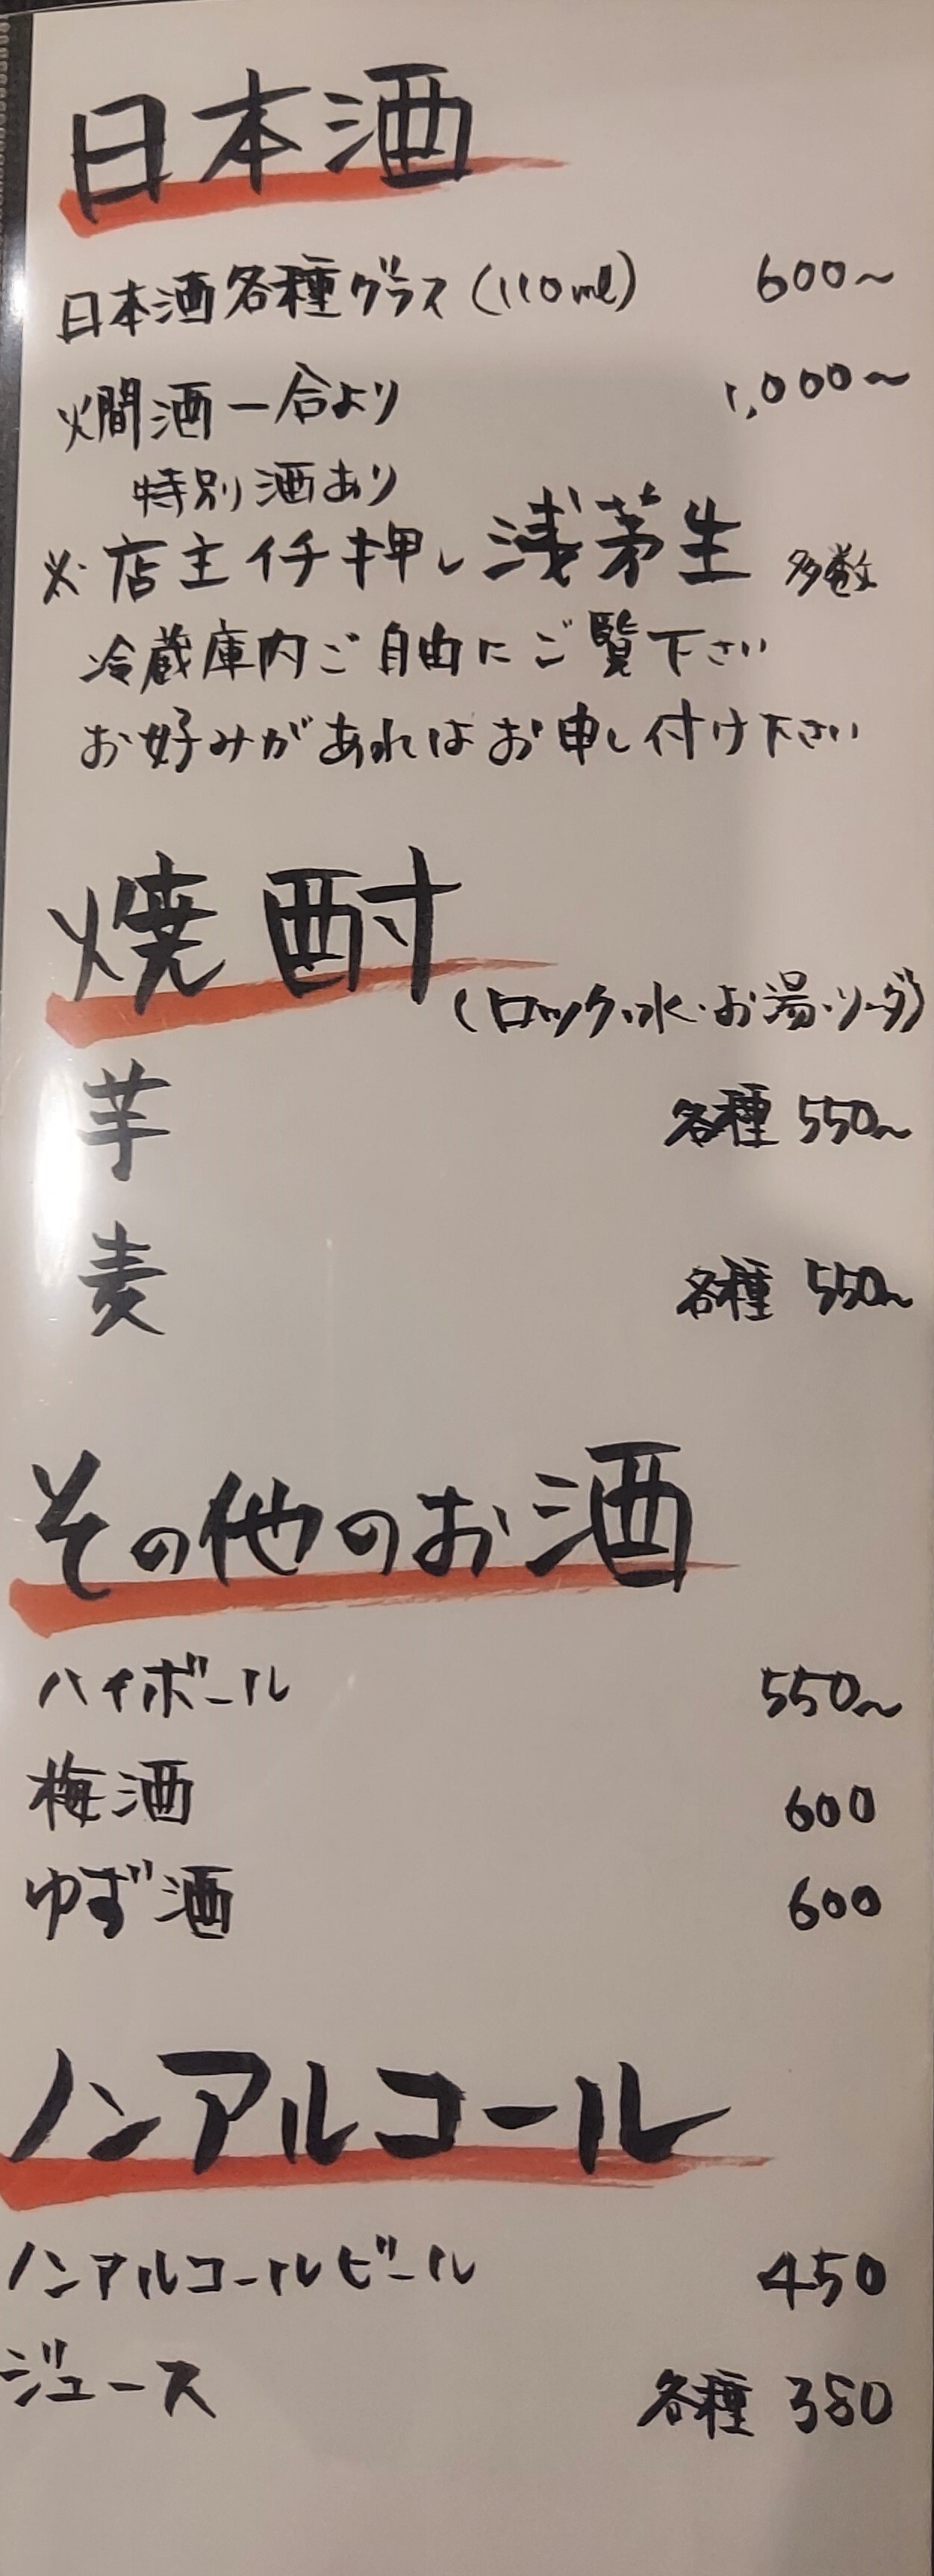 日本酒
日本酒各種グラス(110ml) 600~
燗酒一合より 1,000~
特別酒あり
※店主イチ押し 浅茅生 多数
冷蔵庫内ご自由にご覧下さい
お好みがあればお申し付け下さい
焼酎
(ロック・水・お湯・ソーダ)
芋 各種 550~
麦 各種 550~
その他のお酒
ハイボール 550~
梅酒 600
ゆず酒 600
ノンアルコール
ノンアルコールビール 450
ジュース 各種 380